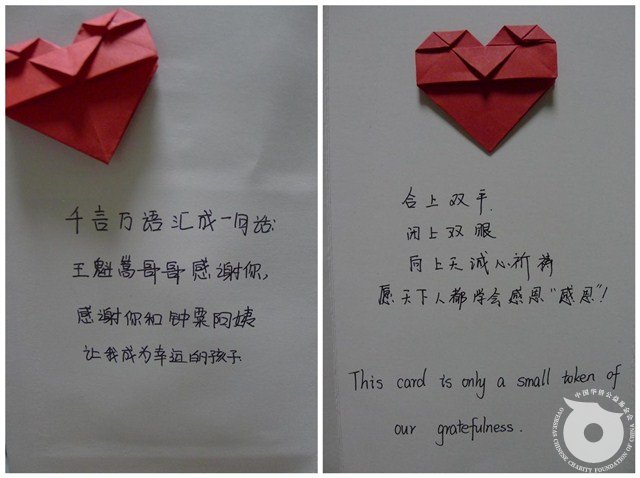 千言万语汇成一句话:
王魁嵩哥哥感谢你,
感谢你和钟粟阿姨
让我成为幸运的孩子
合上双手
闭上双眼
向上天诚心祈祷
愿天下人都学会感恩“感恩”!
This card is only a small token of
our gratefulness.
中国华侨公益基金会
OVERSEAS CHINESE CHARITY FOUNDATION OF CHINA